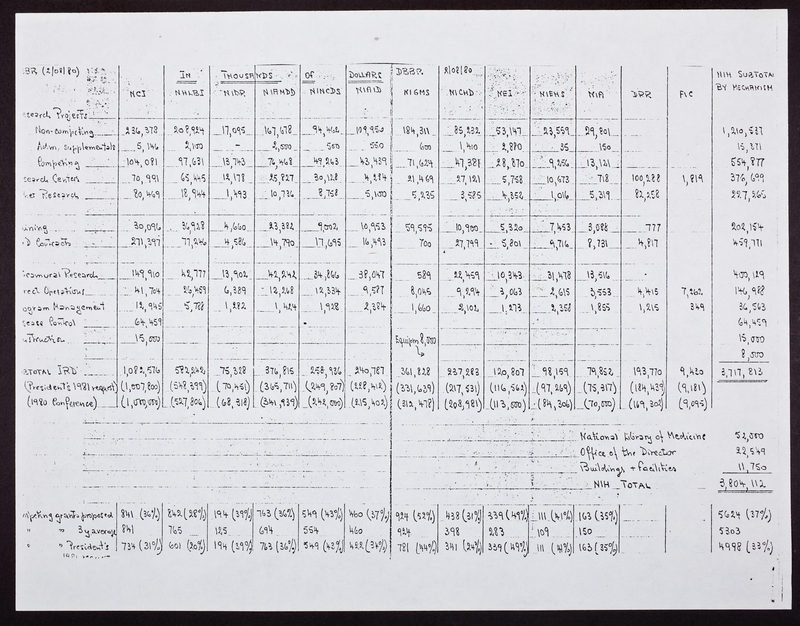 BR (2/08/80) IN THOUSANDS OF DOLLARS DBBP. 2/08/80
NCI NHLBI NIDR NIAMDD NINCDS NIAID NIGMS NICHD NEI NIEHS NIA DRR FIC NIH SUBTOTAL BY MECHANISM
search Projects
Non-competing 236,378 208,924 17,095 167,678 94,462 109,950 184,311 85,232 53,147 23,559 29,801 1,210,537
Adm. supplementals 5,146 2,100 - 2,000 500 550 600 1,410 2,880 35 150 15,371
Competing 104,081 97,631 13,743 76,468 49,263 43,439 71,624 47,388 28,870 9,256 13,121 554,877
search Centers 70,991 65,445 12,178 25,827 30,128 4,284 21,469 27,121 5,758 10,673 718 100,288 1,819 376,699
her Research 80,469 18,944 1,493 10,736 8,758 5,100 5,235 3,585 4,352 1,016 5,319 82,258 227,265
ining 30,096 36,928 4,660 23,382 9,002 10,953 59,595 10,900 5,320 7,453 3,088 777 202,154
D Contracts 271,397 77,246 4,586 14,790 17,695 16,493 700 27,799 5,801 9,716 8,731 4,817 459,771
ramural Research 149,910 42,777 13,902 42,242 34,866 38,047 589 22,459 10,343 31,478 13,516 400,129
rect Operations 41,704 26,459 6,389 12,268 12,334 9,587 8,045 9,294 3,063 2,615 3,553 4,415 7,262 146,988
ogram Management 12,945 5,788 1,282 1,424 1,928 2,384 1,660 2,102 1,273 2,358 1,855 1,215 349 36,563
sease Control 64,459 64,459
struction 15,000 Equipm 8,000 15,000
8,000
BTOTAL IRD 1,082,576 582,242 75,328 376,815 258,936 240,787 361,828 237,283 120,807 98,159 79,852 193,770 9,430 3,717,813
(President's 1981 request) (1,007,800) (548,399) (70,451) (365,711) (249,807) (228,412) (331,639) (217,531) (116,562) (97,269) (75,317) (184,439) (9,181)
(1980 Conference) (1,000,000) (527,806) (68,318) (341,939) (242,000) (215,402) (312,478) (208,981) (113,000) (84,306) (70,000) (169,302) (9,095)
National Library of Medicine 52,000
Office of the Director 22,549
Buildings + facilities 11,750
NIH TOTAL 3,804,112
mpeting grants proposed 841 (36%) 842 (28%) 194 (39%) 763 (36%) 549 (43%) 460 (37%) 924 (52%) 438 (31%) 339 (49%) 111 (41%) 163 (35%) 5624 (37%)
" " 3 y average 841 765 125 694 554 460 924 398 283 109 150 5303
" " President's 734 (31%) 601 (20%) 194 (39%) 763 (36%) 549 (43%) 422 (34%) 781 (44%) 341 (24%) 339 (49%) 111 (41%) 163 (35%) 4998 (33%)